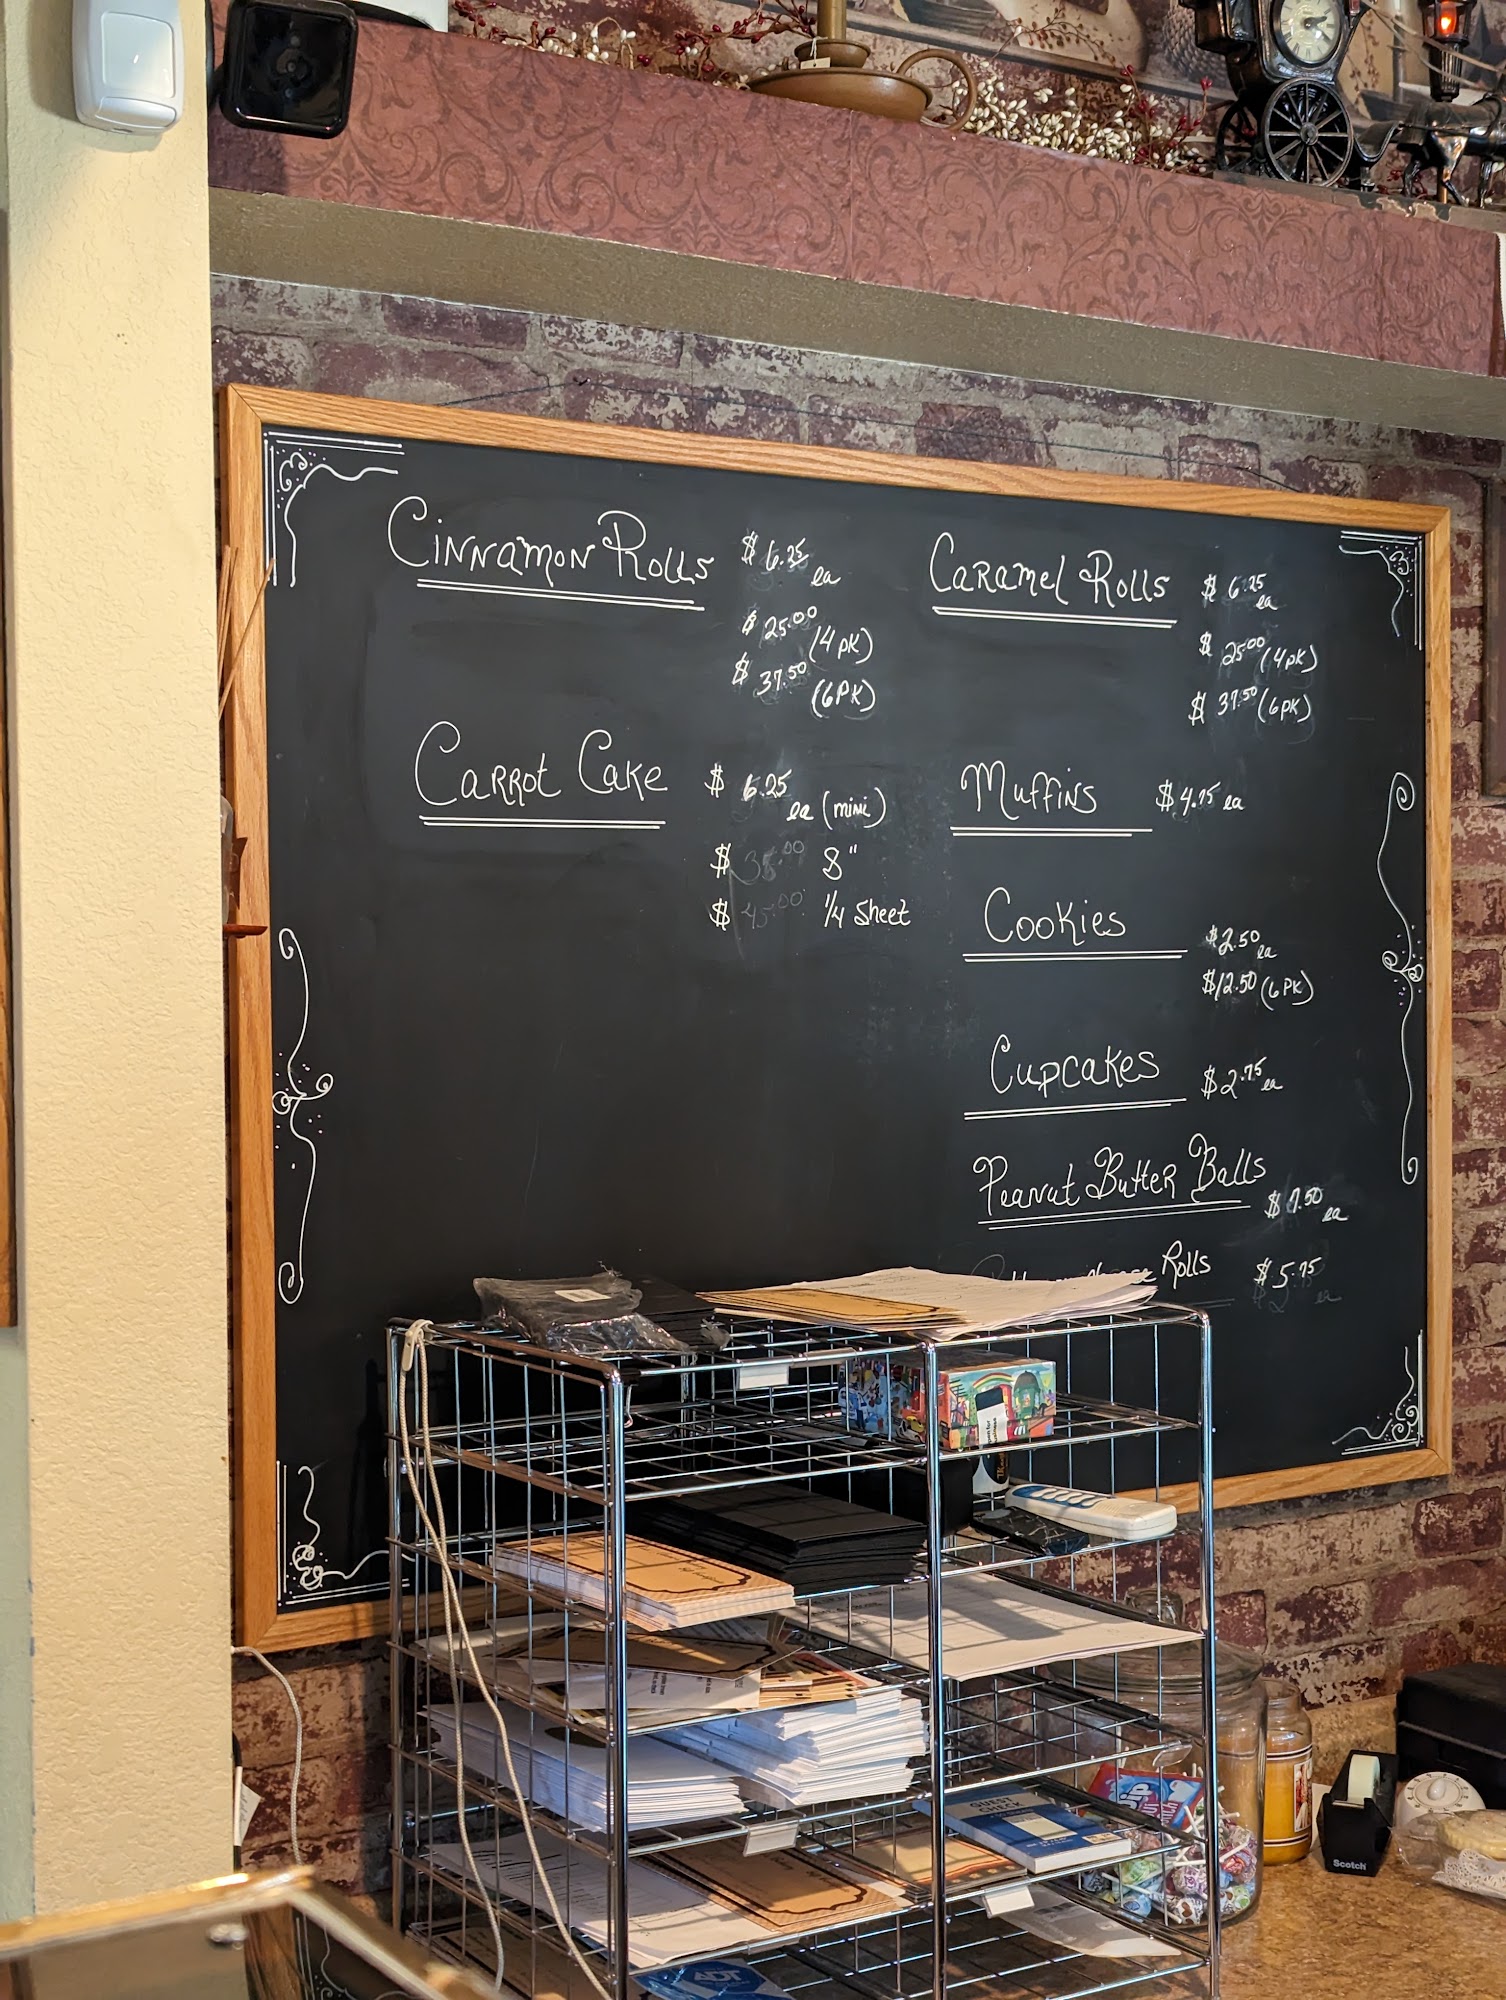 Cinnamon Rolls $ 6.25 ea
$ 25.00 (4 pk)
$ 37.50 (6 PK)
Carrot Cake $ 6.25 ea (mini)
$ 35.00 8"
$ 45.00 1/4 Sheet
Caramel Rolls $ 6.25 ea
$ 25.00 (4 pk)
$ 37.50 (6 pk)
Muffins $ 4.75 ea
Cookies $2.50 ea
$12.50 (6 PK)
Cupcakes $2.75 ea
Peanut Butter Balls $ 7.50 ea
Rolls $ 5.75 ea
GUEST CHECK
Scotch
ADT